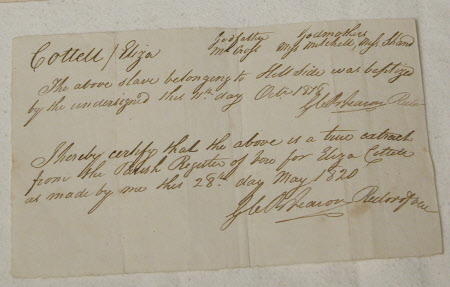 Cottell / Eliza Godfather Godmothers
Mr Cross Miss Mitchell, Miss Strand
The above slave belonging to Hillside was baptized
by the undersigned this 11th day Octr 1818
Rector
I hereby certify that the above is a true extract
from the Parish Register of Vere for Eliza Cottell
as made by me this 28th day May 1820
Rector of Vere